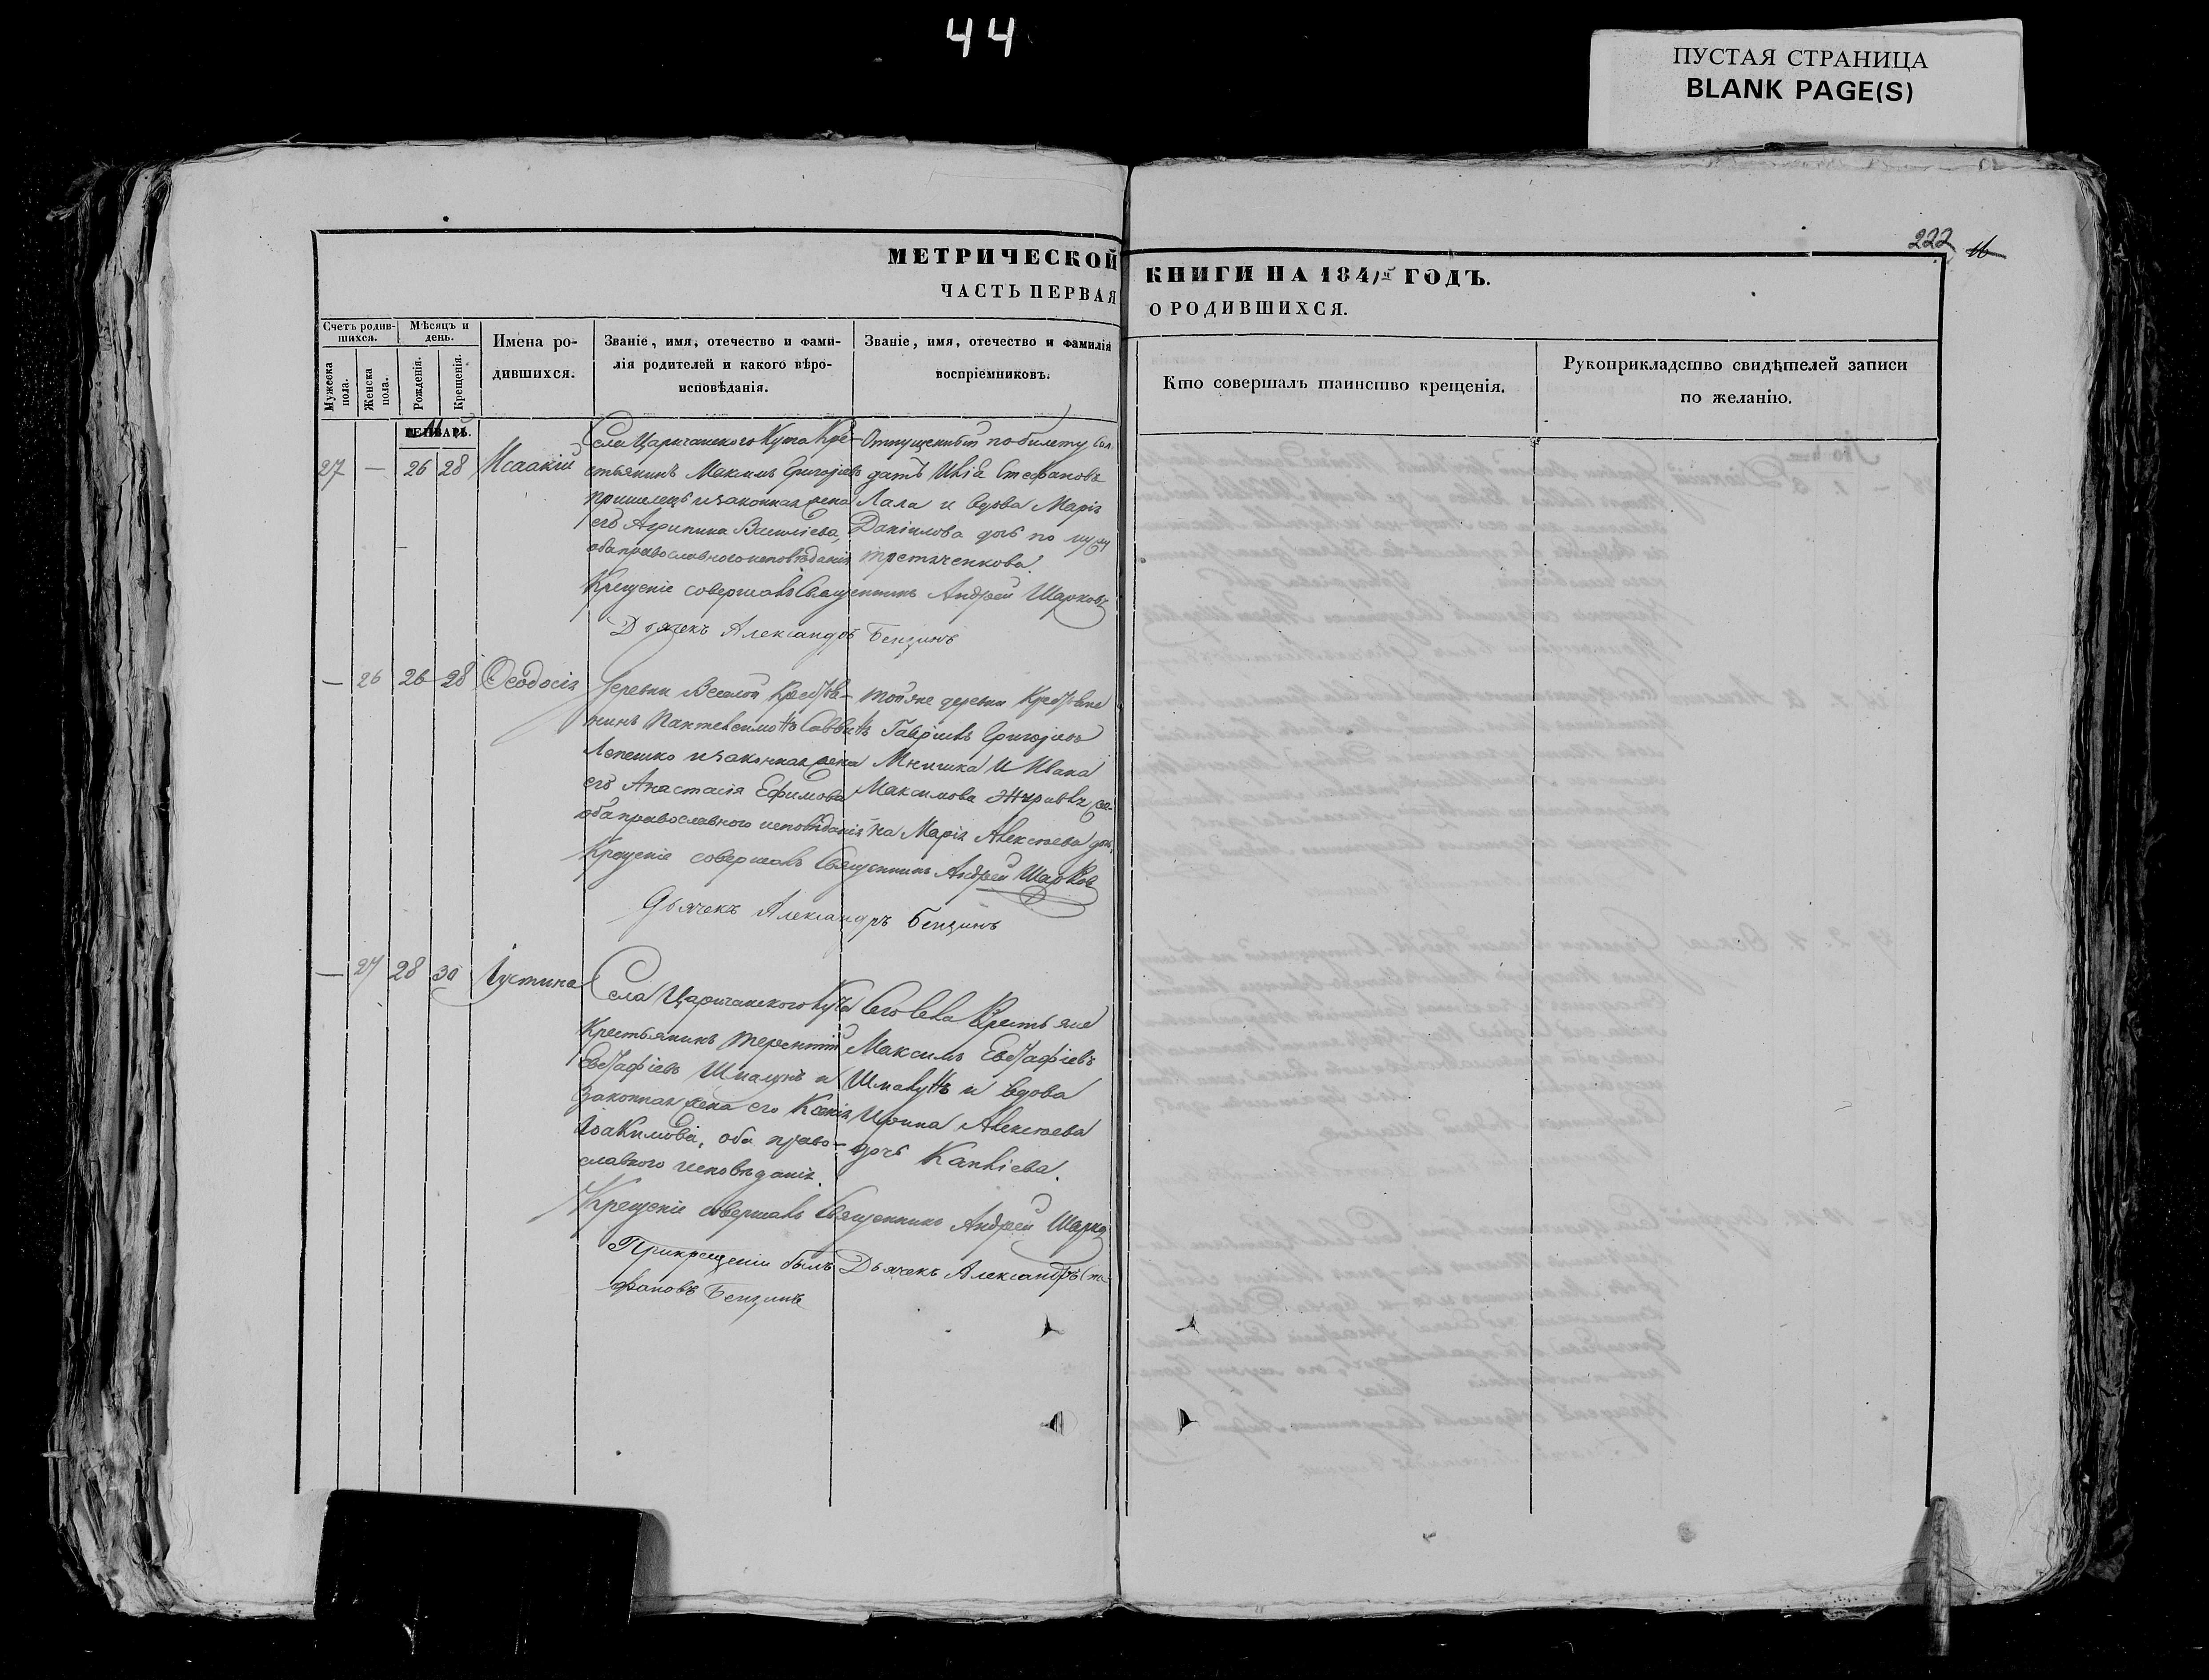 44
ПУСТАЯ СТРАНИЦА
BLANK PAGE(S)
222 16
МЕТРИЧЕСКОЙ КНИГИ НА 1841й ГОДЪ.
ЧАСТЬ ПЕРВАЯ О РОДИВШИХСЯ.
Счетъ родившихся.
Мужеска пола.
Женска пола.
Мѣсяцъ и день.
Рожденія.
Крещенія.
Имена родившихся.
Званіе, имя, отечество и фамилія родителей и какого вѣроисповѣданія.
Званіе, имя, отечество и фамилія воспріемниковъ.
Кто совершалъ таинство крещенія.
Рукоприкладство свидѣтелей записи по желанію.
27 — 26 28 Исаакій
Села Царичанского Кута Кре-
стьянинъ Максимъ Григорьевъ
пришлецъ и законная жена
его Агрипина Василіева,
оба православного исповѣданія
Отпущенный по билету Сол
датъ Илія Стефановъ
Лала и вдова Марія
Даніилова дочь по мужу
Третяченкова.
Крещеніе совершалъ Священникъ Андрей Шарковъ
Дьячекъ Александръ Бензинъ
— 26 26 28 Феодосія
Деревни Веселой Крестья-
нинъ Пантелеимонъ Саввинъ
Лепешко и законная жена
его Анастасія Ефимова
оба православного исповѣданія
Той же деревни Крестьяне
Гавріилъ Григорьевъ
Мнишка и Ивана
Максимова Журавля же-
на Марія Алексѣева дочь.
Крещеніе совершалъ Священникъ Андрей Шарков
Дьячекъ Александръ Бензинъ
— 27 28 30 Іустина
Села Царичанского Кута
Крестьянинъ Терентій
Евстафіевъ Шмалунъ и
законная жена его Ксенія
Іоакимова, оба право-
славного исповѣданія.
Сего села Крестьяне
Максимъ Евстафіевъ
Шмалунъ и вдова
Ирина Алексѣева
дочь Капліева.
Крещеніе совершалъ Священникъ Андрей Шарков
При крещеніи былъ Дьячекъ Александръ Сте-
фановъ Бензинъ